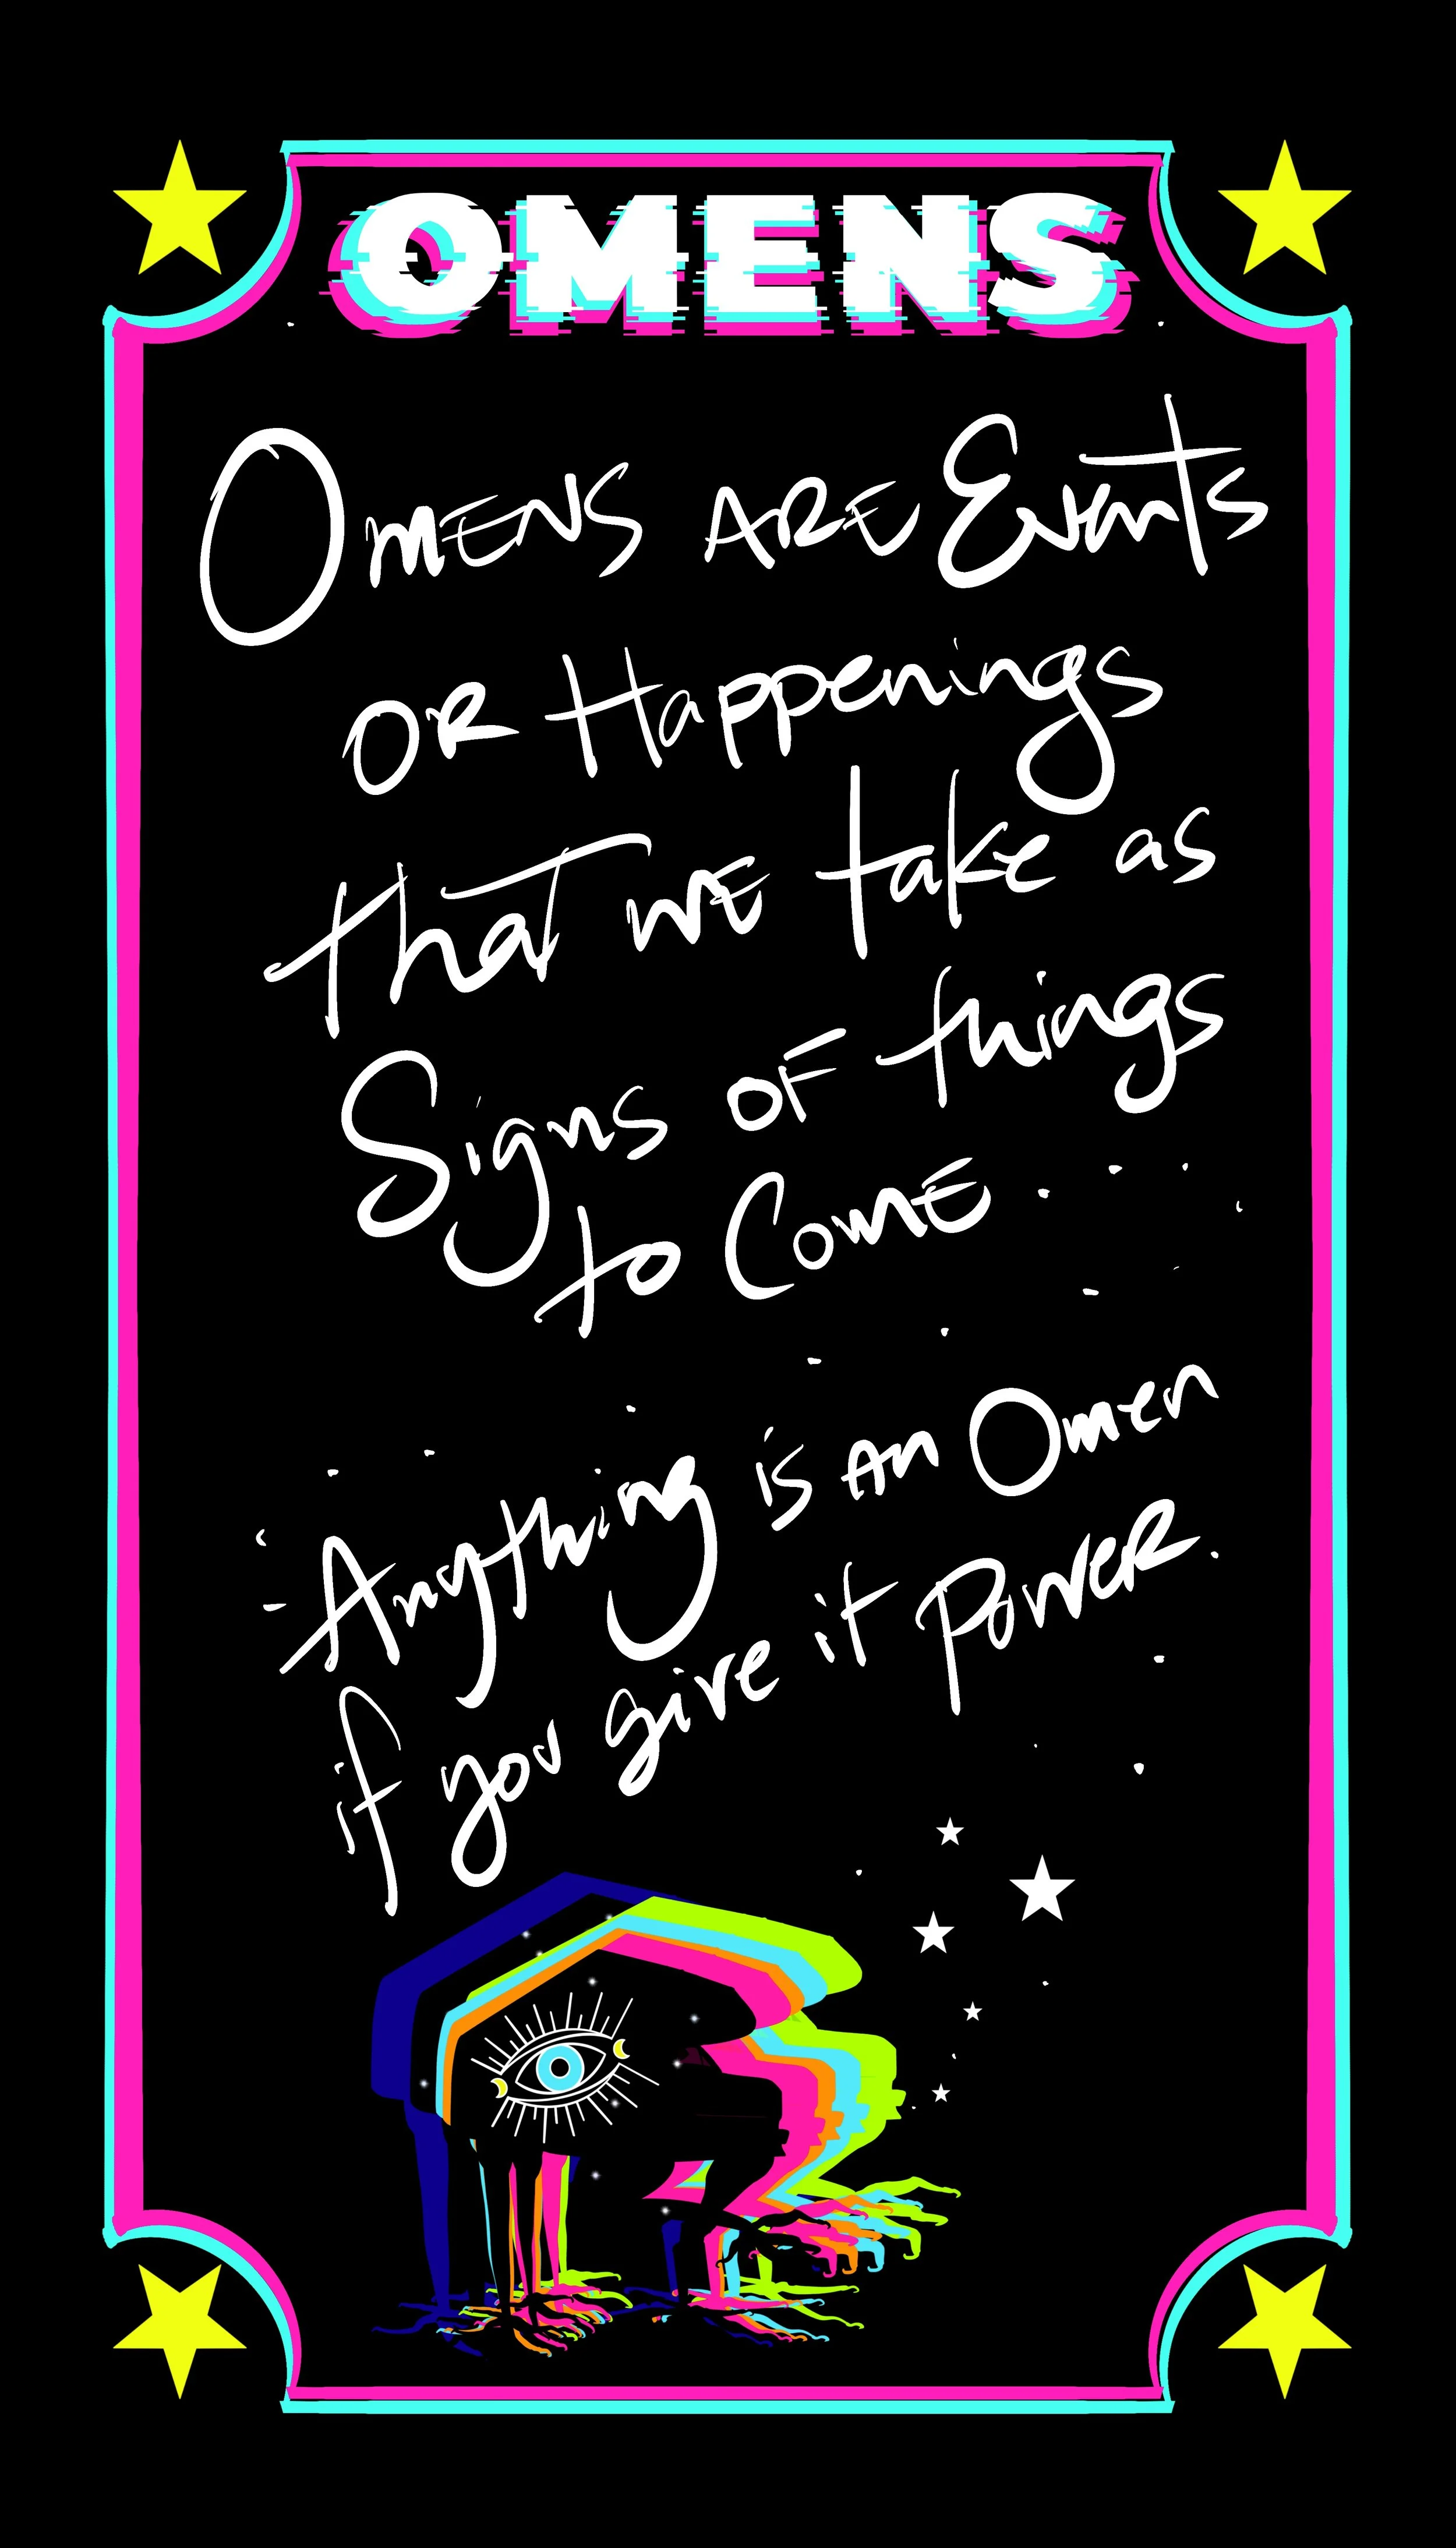 OMENS
OMENS ARE Events
OR Happenings
that WE take as
Signs OF things
to COME...
"Anything is An Omen
if you give it PoweR.